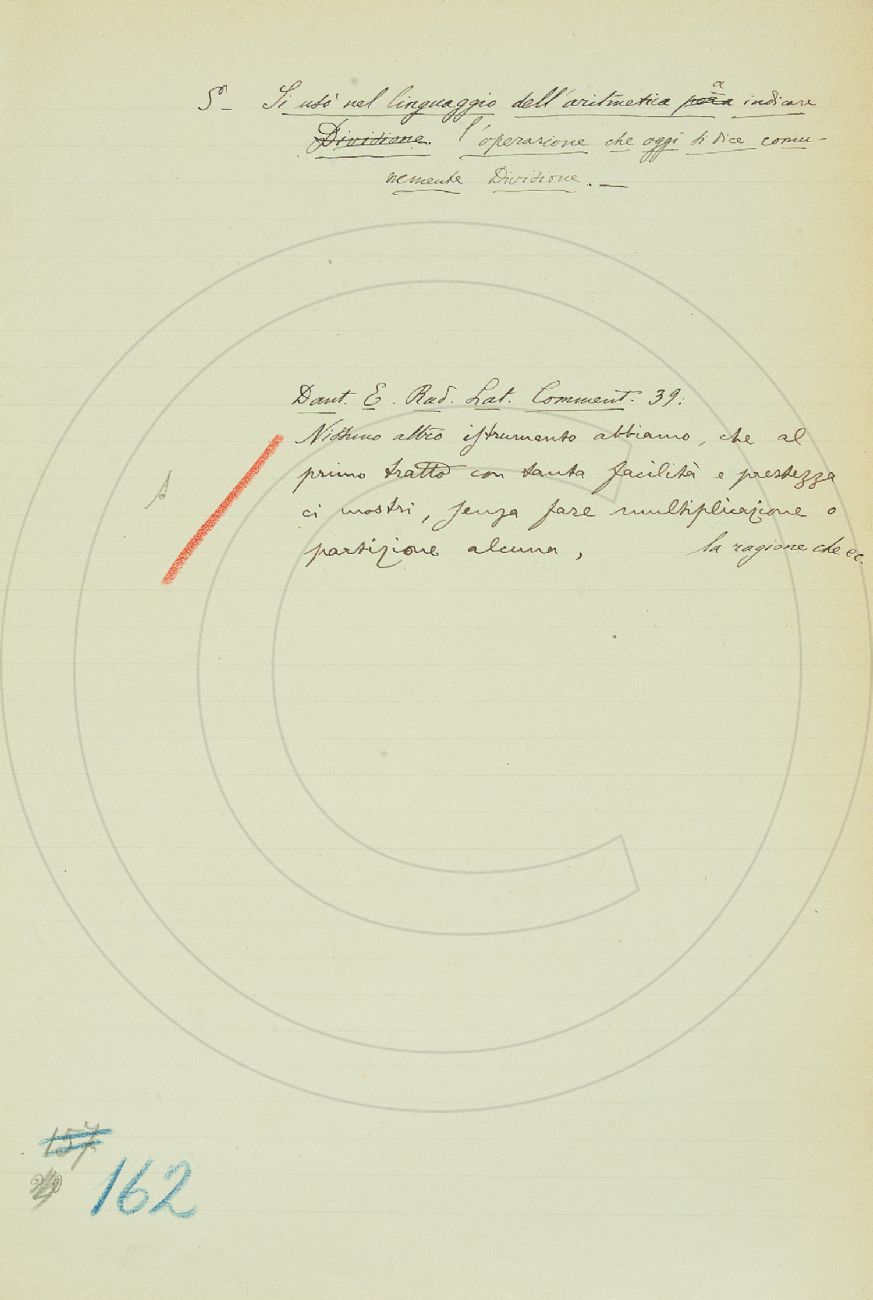 5°- Si usò nel linguaggio dell'aritmetica per a a indicare
Divisione. l'operazione che oggi si dice comu-
nemente Divisione. —
Dant. E. Rad. Lat. Comment. 39:
Nissuno altro istrumento abbiamo, che al
primo tratto con tanta facilità e prestezza
ci mostri, senza fare multiplicazione o
partizione alcuna, la ragione che ec.
157
162